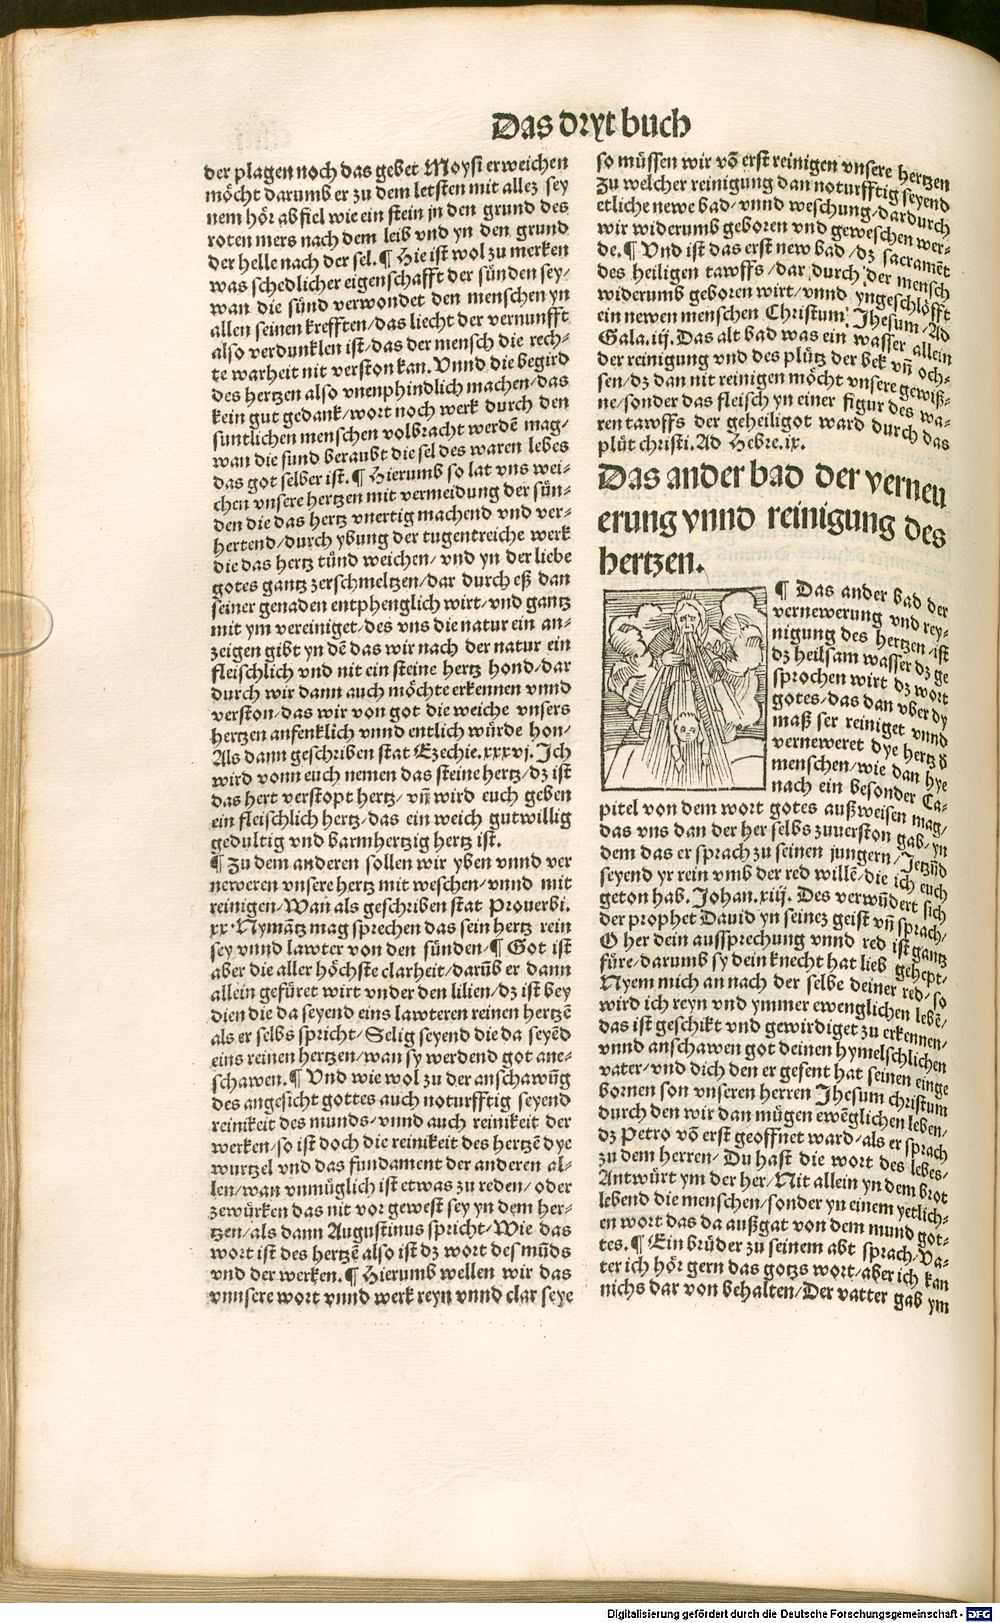 Das dryt buch
der plagen noch das gebet Moysi erweichen
möcht darumb er zu dem letsten mit allez sey
nem hör abfiel wie ein stein jn den grund des
roten mers nach dem leib vnd yn den grund
der helle nach der sel. ¶ Hie ist wol zu merken
was schedlicher eigenschafft der sünden sey/
wan die sünd verwondet den menschen yn
allen seinen krefften/das liecht der vernunfft
also verdunklen ist/das der mensch die rech-
te warheit nit verston kan. Vnnd die begird
des hertzen also vnenphindlich machen/das
kein gut gedank/wort noch werk durch den
suntlichen menschen volbracht werdē mag-
wan die sund beraubt die sel des waren lebes
das got selber ist. ¶ Hierumb so lat vns wei-
chen vnsere hertzen mit vermeidung der sün-
den die das hertz vnertig machend vnd ver-
hertend/durch ybung der tugentreiche werk
die das hertz tünd weichen/vnd yn der liebe
gotes gantz zerschmeltzen/dar durch eß dan
seiner genaden entphenglich wirt/vnd gantz
mit ym vereiniget/des vns die natur ein an-
zeigen gibt yn dē das wir nach der natur ein
fleischlich vnd nit ein steine hertz hond/dar
durch wir dann auch möchte erkennen vnnd
verston/das wir von got die weiche vnsers
hertzen anfenklich vnnd entlich würde hon/
Als dann geschriben stat Ezechie.xxxvj. Ich
wird vonn euch nemen das steine hertz/dz ist
das hert verstopt hertz/ vñ wird euch geben
ein fleischlich hertz/das ein weich gutwillig
gedultig vnd barmhertzig hertz ist.
¶ Zu dem anderen sollen wir yben vnnd ver
neweren vnsere hertz mit weschen/vnnd mit
reinigen/Wan als geschriben stat Prouerbi.
xx. Nymātz mag sprechen das sein hertz rein
sey vnnd lawter von den sünden/ ¶ Got ist
aber die aller höchste clarheit/darūb er dann
allein gefüret wirt vnder den lilien/dz ist bey
dien die da seyend eins lawteren reinen hertzē
als er selbs spricht/Selig seyend die da seyēd
eins reinen hertzen/wan sy werdend got ane-
schawen. ¶ Vnd wie wol zu der anschawūg
des angesicht gottes auch noturfftig seyend
reinikeit des munds/vnnd auch reinikeit der
werken/so ist doch die reinikeit des hertzē dye
wurtzel vnd das fundament der anderen al-
len/wan vnmüglich ist etwas zu reden/oder
zewürken das nit vor gewest sey yn dem her-
tzen/als dann Augustinus spricht/Wie das
wort ist des hertzē also ist dz wort des mūds
vnd der werken. ¶ Hierumb wellen wir das
vnnsere wort vnnd werk reyn vnnd clar seye
so müssen wir vō erst reinigen vnsere hertzen
Zu welcher reinigung dan noturfftig seyend
etliche newe bad/vnnd weschung/dardurch
wir widerumb geboren vnd geweschen wer-
de. ¶ Vnd ist das erst new bad/dz sacramēt
des heiligen tawffs/dar durch der mensch
widerumb geboren wirt/vnnd yngeschlöfft
ein newen menschen Christum: Jhesum/Ad
Gala.iij. Das alt bad was ein wasser allein
der reinigung vnd des plütz der bek vñ och-
sen/dz dan nit reinigen möcht vnsere gewiß-
ne/sonder das fleisch yn einer figur des wa-
ren tawffs der geheiligot ward durch das
plüt christi. Ad Hebre.ix.
Das ander bad der verneu
erung vnnd reinigung des
hertzen.
¶ Das ander bad der
vernewerung vnd rey-
nigung des hertzen/ist
dz heilsam wasser dz ge
sprochen wirt dz wort
gotes/das dan vber dy
maß ser reiniget vnnd
verneweret dye hertz d̄
menschen/wie dan hye
nach ein besonder Ca-
pitel von dem wort gotes außweisen mag/
das vns dan der her selbs zuuerston gab/yn
dem das er sprach zu seinen jungern/Jetzūd
seyend yr rein vmb der red willē/die ich euch
geton hab. Johan.xiij. Des verwūdert sich
der prophet Dauid yn seinez geist vñ sprach/
O her dein aussprechung vnnd red ist gantz
füre/darumb sy dein knecht hat lieb gehept/
Nyem mich an nach der selbe deiner red/so
wird ich reyn vnd ymmer ewenglichen lebē/
das ist geschikt vnd gewirdiget zu erkennen/
vnnd anschawen got deinen hymelschlichen
vater/vnd dich den er gesent hat seinen einge
bornen son vnseren herren Jhesum christum
durch den wir dan mügen ewēglichen leben/
dz Petro vō erst geoffnet ward/als er sprach
zu dem herren/ Du hast die wort des lebes/
Antwürt ym der her/Nit allein yn dem brot
lebend die menschen/sonder yn einem yetlich-
en wort das da außgat von dem mund got-
tes. ¶ Ein brüder zu seinem abt sprach/Va-
ter ich hör gern das gotzs wort/aber ich kan
nichs dar von behalten/Der vatter gab ym
Digitalisierung gefördert durch die Deutsche Forschungsgemeinschaft - DFG